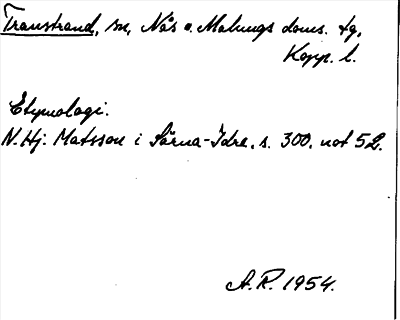 Transtrand, sn, Nås o. Malungs doms. tg,
Kopp. l.
Etymologi.
N. Hj. Matsson i Särna-Idre, s. 300, not 52.
A.R. 1954.